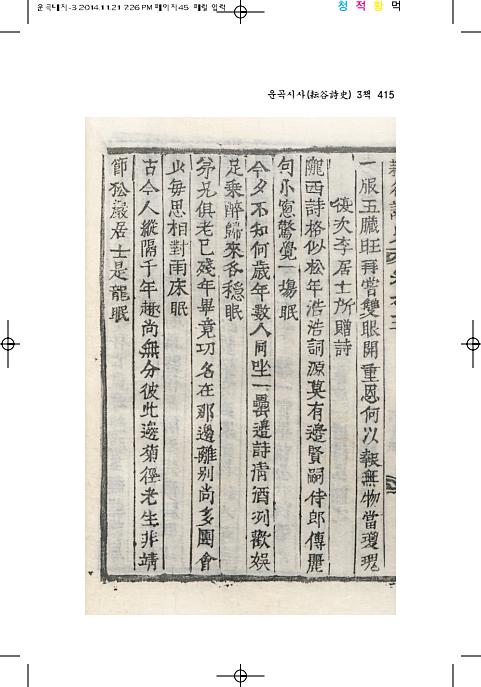 운곡대치-3 2014.11.21 7:26 PM 페이지45
청 적 황 먹
운곡시사(耘谷詩史) 3책 415
一服五臟旺再嘗雙眼開重恩何以報無物當瓊瑰
復次李居士所贈詩
隴西詩格似松年浩浩詞源莫有邊賢嗣侍郎傳麗
句小窓驚覺一場眠
今夕不知何歲年數人同坐一罍邊詩淸酒冽歡娛
足乘醉歸來各穩眠
弟兄俱老已殘年畢竟功名在那邊離别尚多團會
少每思相對雨床眠
古今人縱隔千年趣尚無分彼此邊菊徑老生非靖
節松巖居士是龍眠